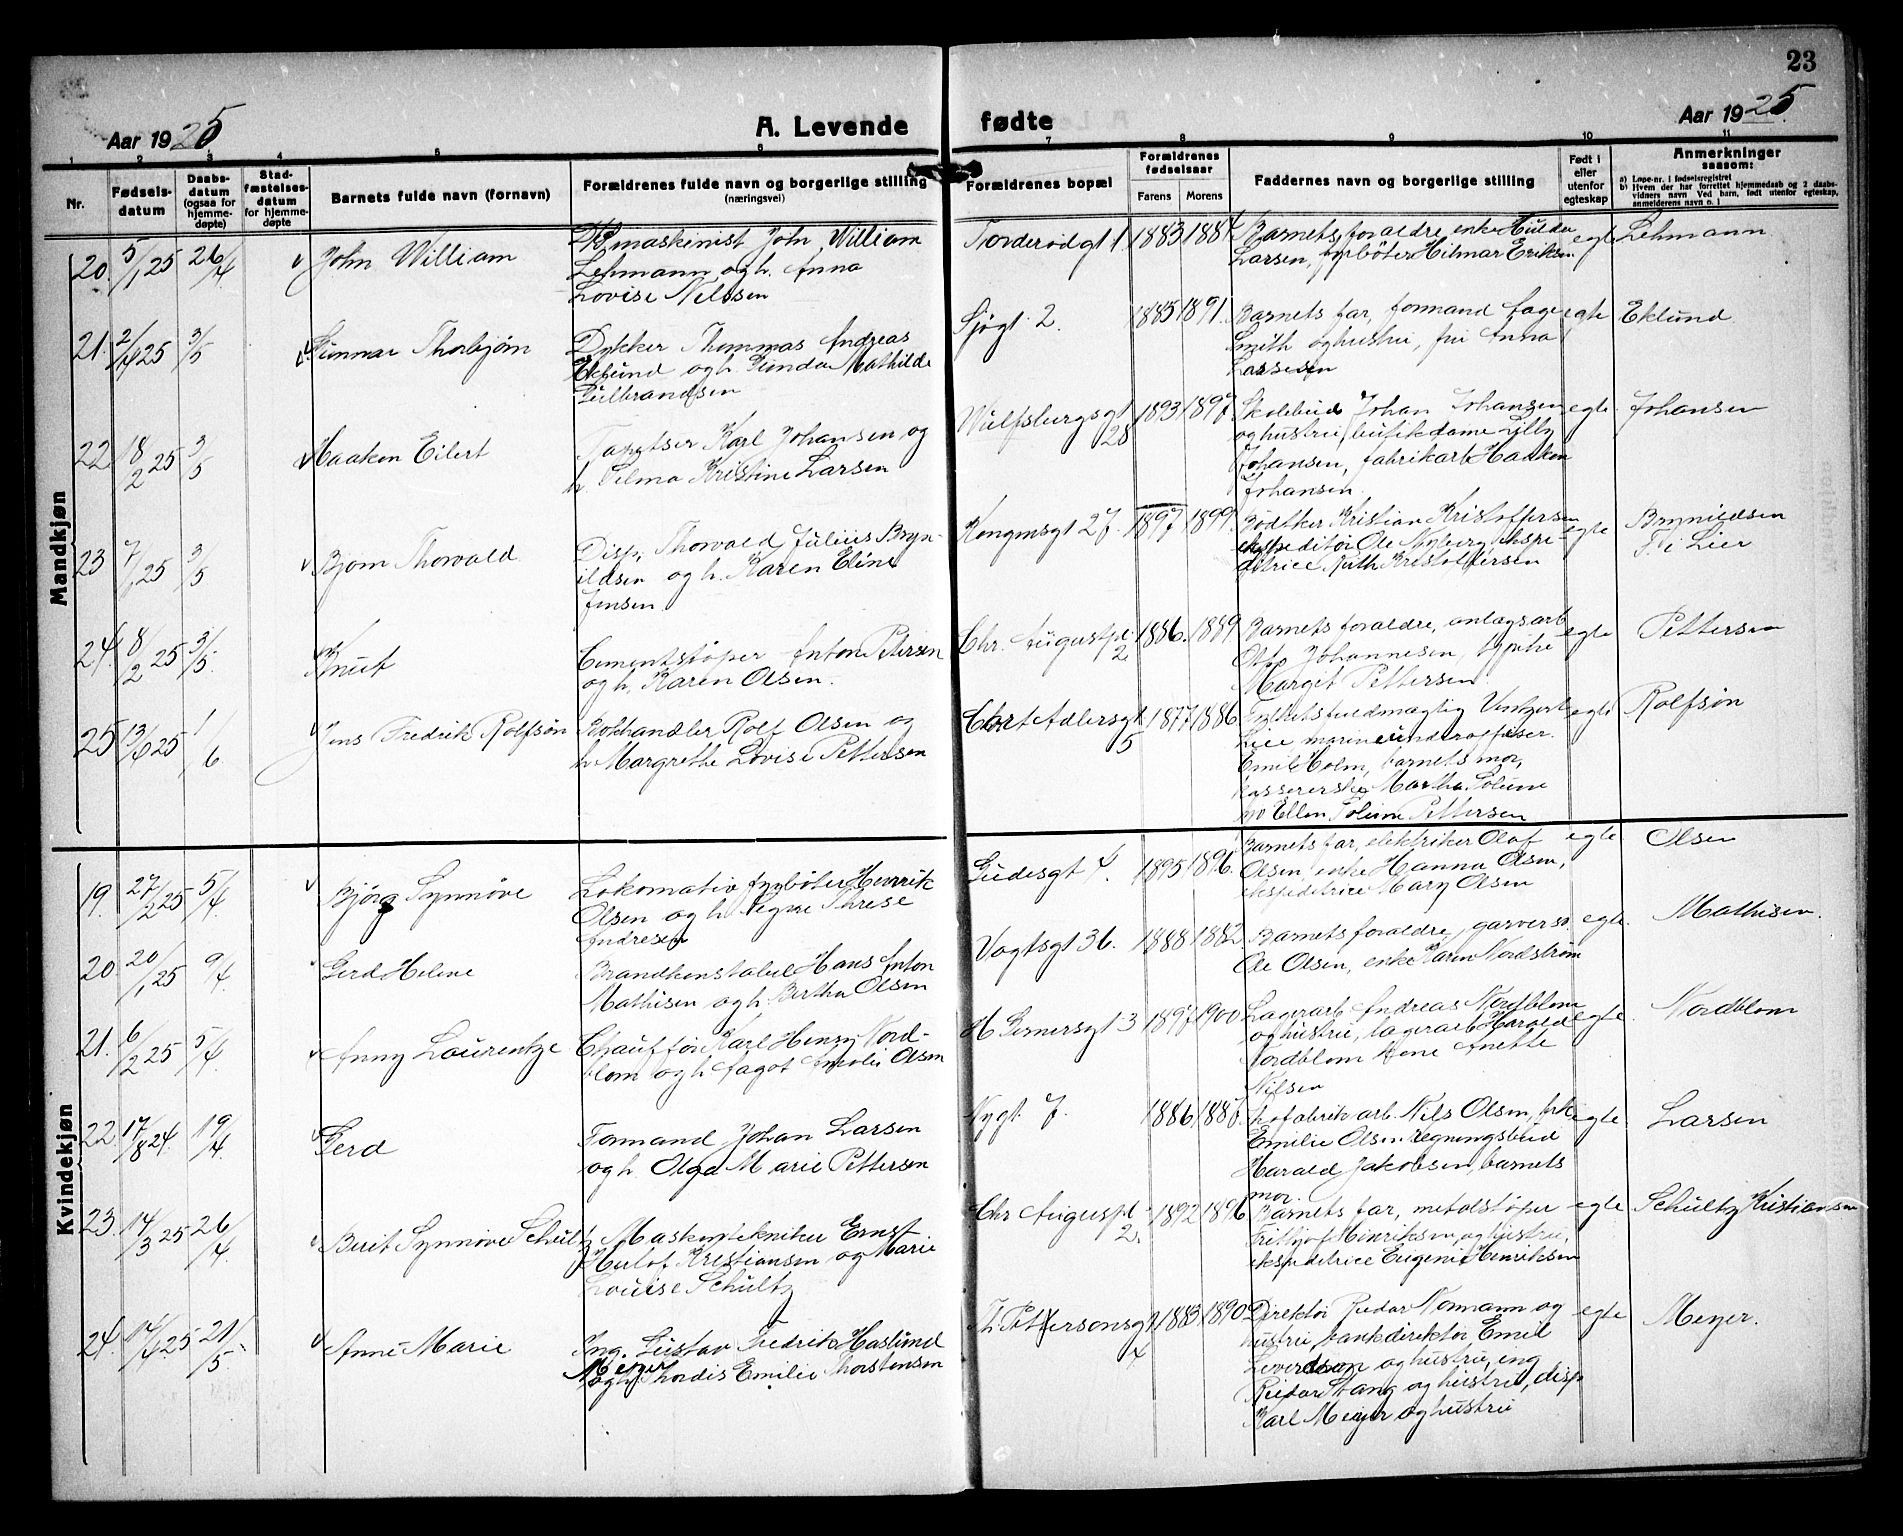 23
Aar 1925
A. Levende fødte
Aar 1925
1 2 3 4 5 6 7 8 9 10 11
Nr.
Fødsels-
datum
Daabs-
datum
(ogsaa for
hjemme-
døpte)
Stad-
fæstelses-
datum
for hjemme-
døpte
Barnets fulde navn (fornavn)
Forældrenes fulde navn og borgerlige stilling
(næringsvei)
Forældrenes bopæl
Forældrenes
fødselsaar
Farens Morens
Faddernes navn og borgerlige stilling
Født i
eller
utenfor
egteskap
Anmerkninger
saasom:
a) Løpe-nr. i fødselsregistret
b) Hvem der har forrettet hjemmedaab og 2 daabs-
vidners navn Ved barn, født utenfor egteskap,
anmelderens navn o. l
Mandkjøn
20. 5/1 25 26/4 John William
maskinist John William
Lehmann og h. Anna
Lovise Nilssen
Torderødgt 1. 1883 1884
Barnets foraldre, enke Hulda
Larsen, fyrbøter Hilmar Eriksen
egte Lehmann
21. 25 3/5 Gunnar Thorbjørn
Dykker Thommas Andreas
Eklund og h. Gunda Mathilde
Gulbrandsen
Sjøgt 2. 1885 1891.
Barnets far, formand Aage
Smith og hustru, fru Anna
Larsen
egte Eklund
22 18/2 25 3/5 Haaken Eilert
Tapetser Karl Johansen og
h. Selma Kristine Larsen
Wulfsbergsgt 28 1893 1897.
Skolebud Johan Johansen
og hustru, butikdame Lilly
Johansen, fabrikarb Haaken
Johansen.
egte Johansen
23 7/1 25 3/5 Bjørn Thorvald.
Disp, Thorvald Julius Bryn-
ildsen og h. Karen Eline
Jensen.
Kongensgt 27. 1897 1899.
Bødtker Kristian Kristoffersen
ekspeditør Ole Nyberg ekspe-
ditrice Ruth Kristoffersen
egte Brynildsen
F. i Lier
24. 8/2 25 3/5. Knut
Cementstøper Anton Petersen
og h. Karen Olsen.
Chr. Augustpl. 2 1886. 1889
Barnets foraldre, anlægsarb
Otto Johannesen,
Margit Pettersen
egte Pettersen
25 13/ 25 1/6 Jens Fredrik Rolfsøn
Kolhandler Rolf Olsen og
h. Margrethe Lovise Pettersen
Cort Adlersgt 5 1877 1886
Fylkesfuldmægtig
Lie, marineunderofficer.
Emil Holm, barnets mor,
kassererske Martha Solum
og Ellen Solum Pettersen
egte Rolfsøn
Kvindekjøn
19. 27/2 25 5/4 Bjørg Synnøve
Lokomativfyrbøter Henrik
Olsen og h. Signe Threse
Andresen
Gudesgt 4. 1895 1896.
Barnets far, elektriker Olaf
Olsen, enke Hanna Olsen,
ekspeditrice Mary Olsen
egte Olsen
20. 20/1 25 9/4 Gerd Helene
Brandkonstabel Hans Anton
Mathisen og h. Bertha Olsen
Vogtsgt 36. 1888 1882
Barnets foraldre, garversv.
Ole Olsen, enke Karen Nordstrøm
egte. Mathisen.
21. 6/2 25 5/4 Anny Laurentze
Chauffør Karl Henry Nord-
blom og h. Aagot Amalie Olsen
H Gernersgt 3 1897 1900
Lagerarb Andreas Nordblom
og hustru, lagerarb Harald
Nordblom Anette
Nilsen
egte. Nordblom
22 17/8 24. 19/4 Gerd
Formand Johan Larsen
og h. Olga Marie Pettersen
Nygt 7. 1886 1887.
fabrikarb. Nils Olsen, frk
Emilie Olsen, regningsbud
Harald Jakobsen, barnets
mor.
egte. Larsen
23. 14/3 25 26/4 Berit Synnøve Schultz
Maskintekniker Ernst
Herlof Kristiansen og Marie
Louise Schultz
Chr Augustpl. 2. 1892 1896
Barnets far, metalstøper
Fritjof Henriksen, og hustru,
ekspeditrice Eugenie Henriksen
egte Schultz Kristiansen
24. 14/4 25 21/5. Anne-Marie
Ing. Gustav Fredrik Haslund
Meyer
og h. Thordis Emilie Thorstensen
Th. Pettersonsgt 4 1883 1890
Direktør Reidar Normann og
hustru, bankdirektør Emil
og hustru, ing
Reidar Stang og hustru, disp
Karl Meyer og hustru
egte Meyer.